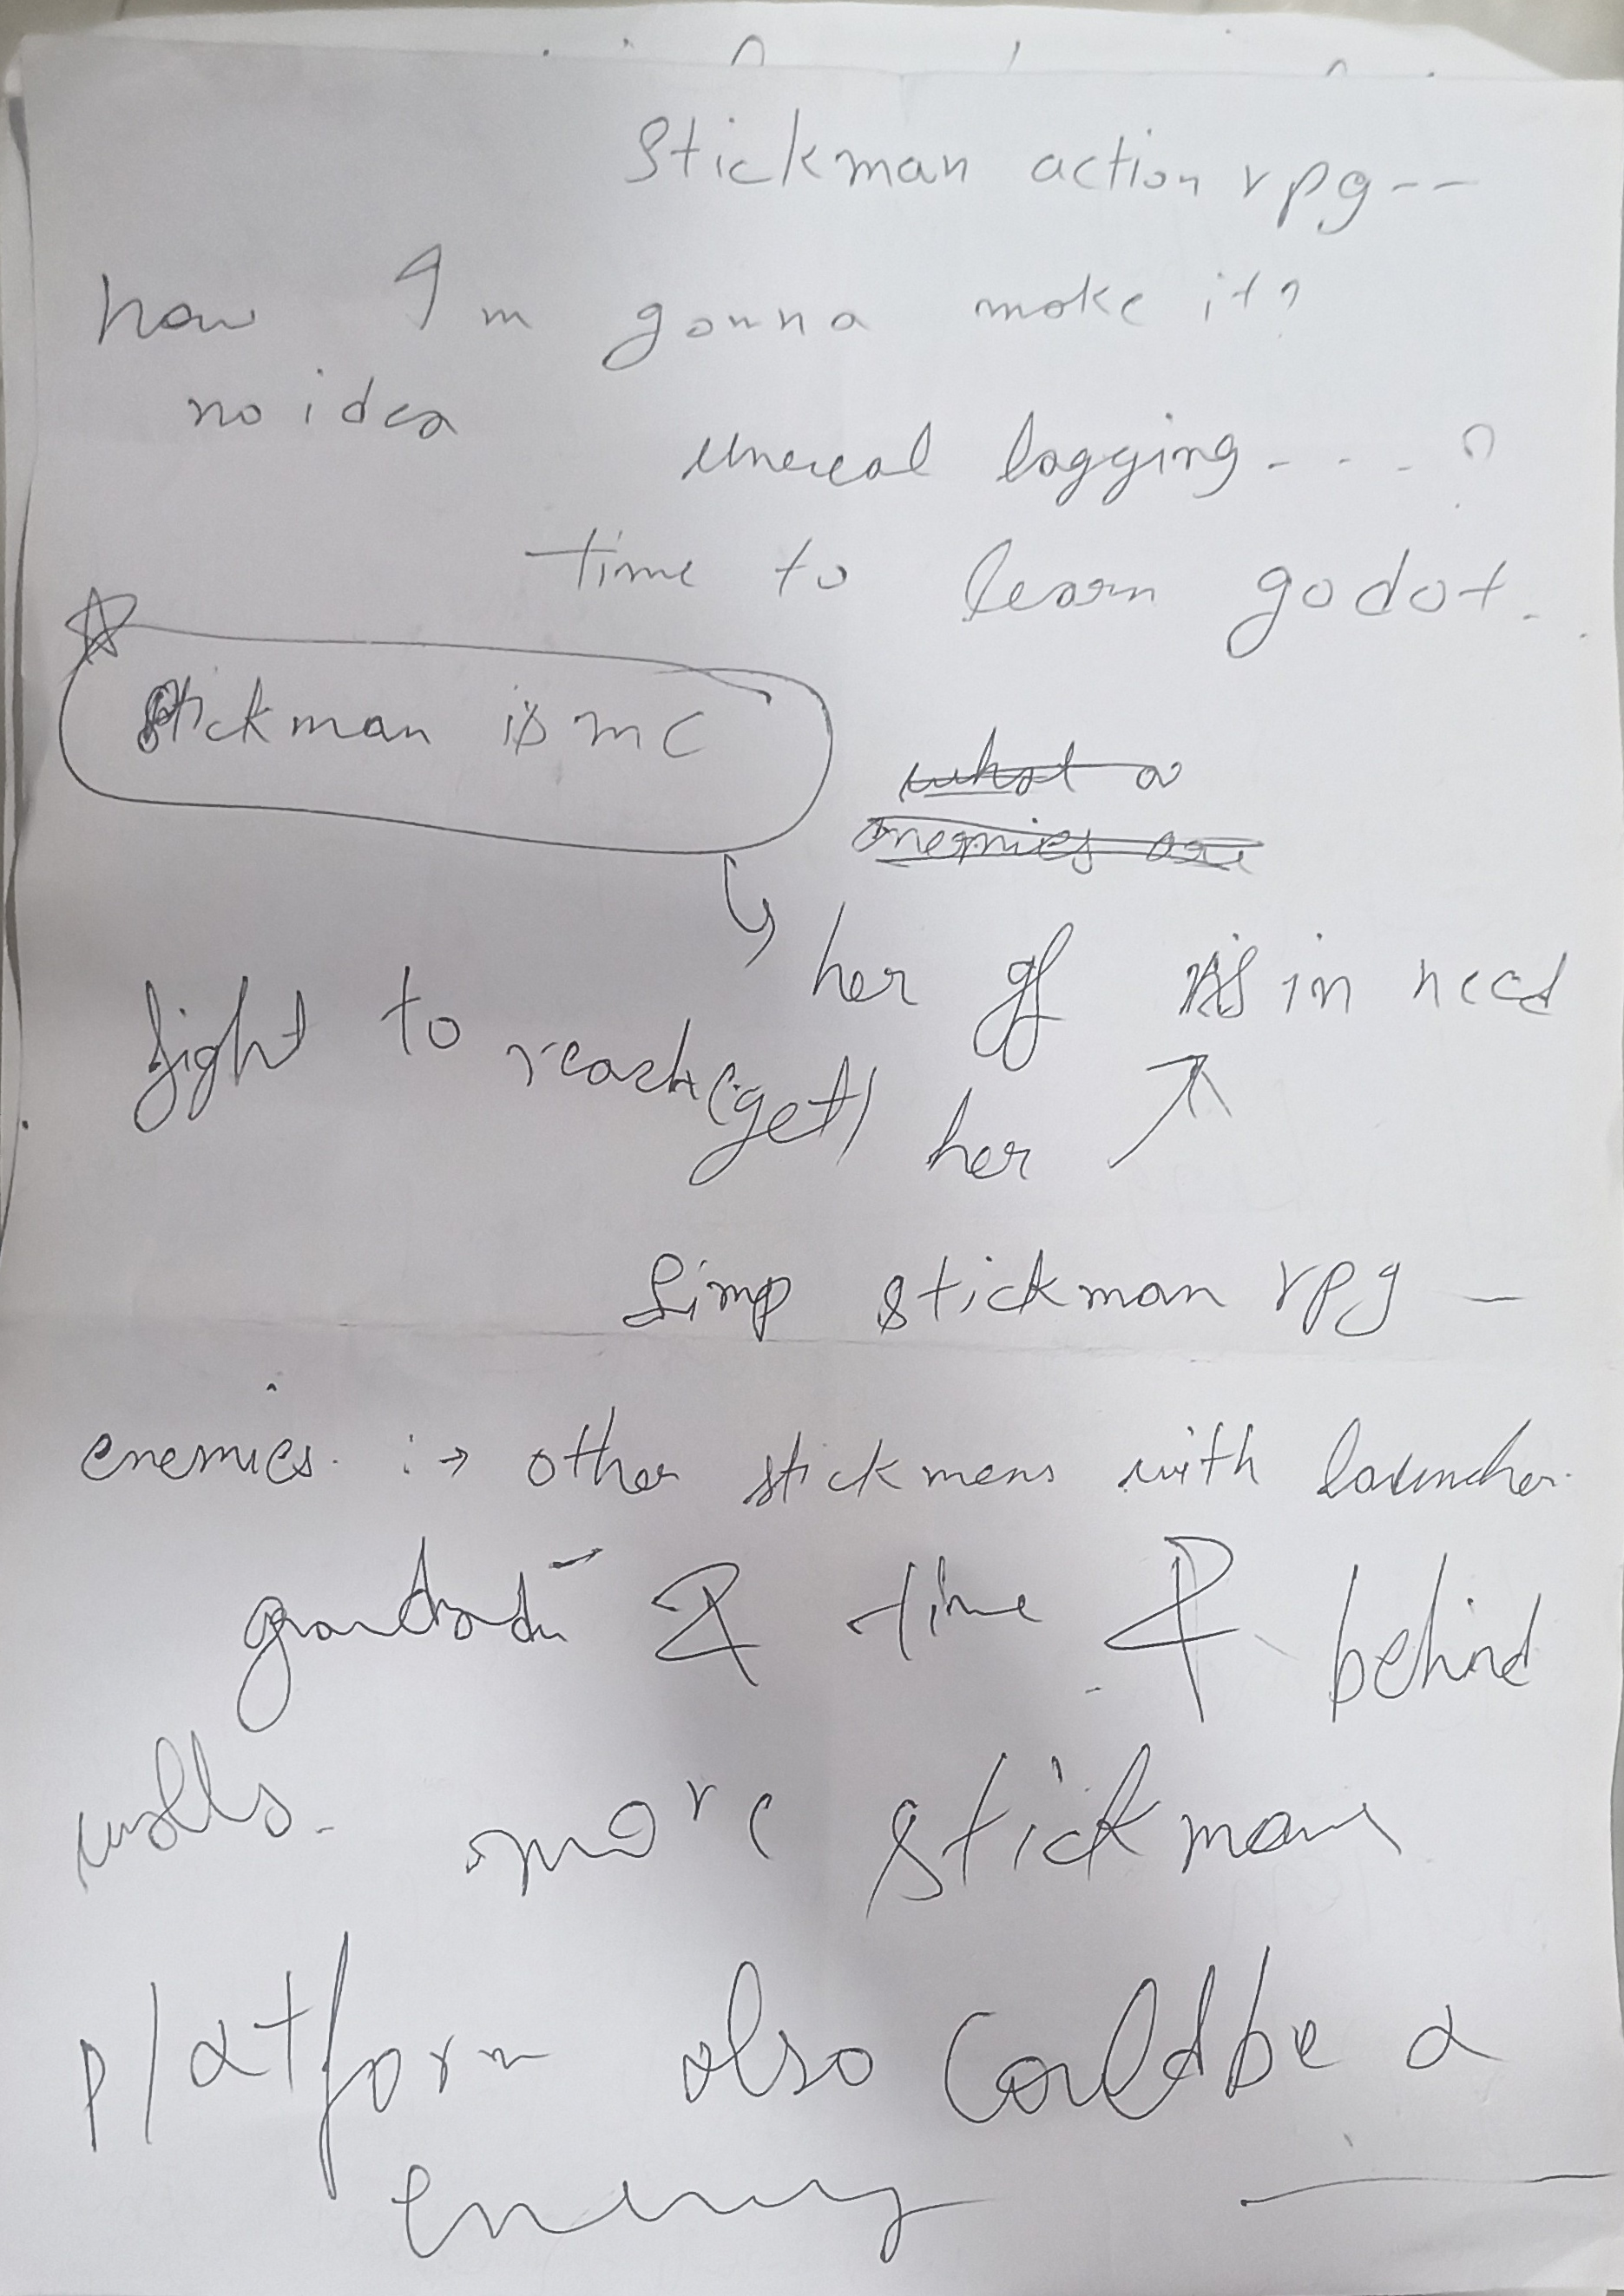 Stickman action rpg--
how I m gonna make it?
no idea
unreal lagging- - - - ?
time to learn godot. .
Stickman is mc
what a
enemies are
her gf is in need
fight to reach (get) her
Simp stickman rpg -
enemies. :→ other stickmens with launcher.
& time behind
walls. more stickmans
platform also could be a
enemy